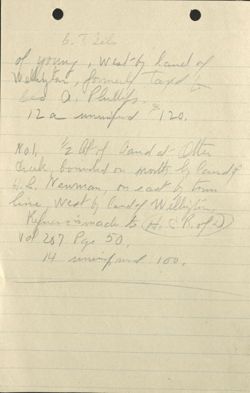 of young, West by land of
Wellington, formerly Taxd
Geo A. Phillips.
12 a unimpd $120.
No 1, 1/2 of land at Otter
Creek, bounded on north by land of
H.L. Newman, on east by town
line, West by land of Wellington
Reference is made to (H. C. R. of D)
Vol 207 Pge 50.
14 unimpd 100.